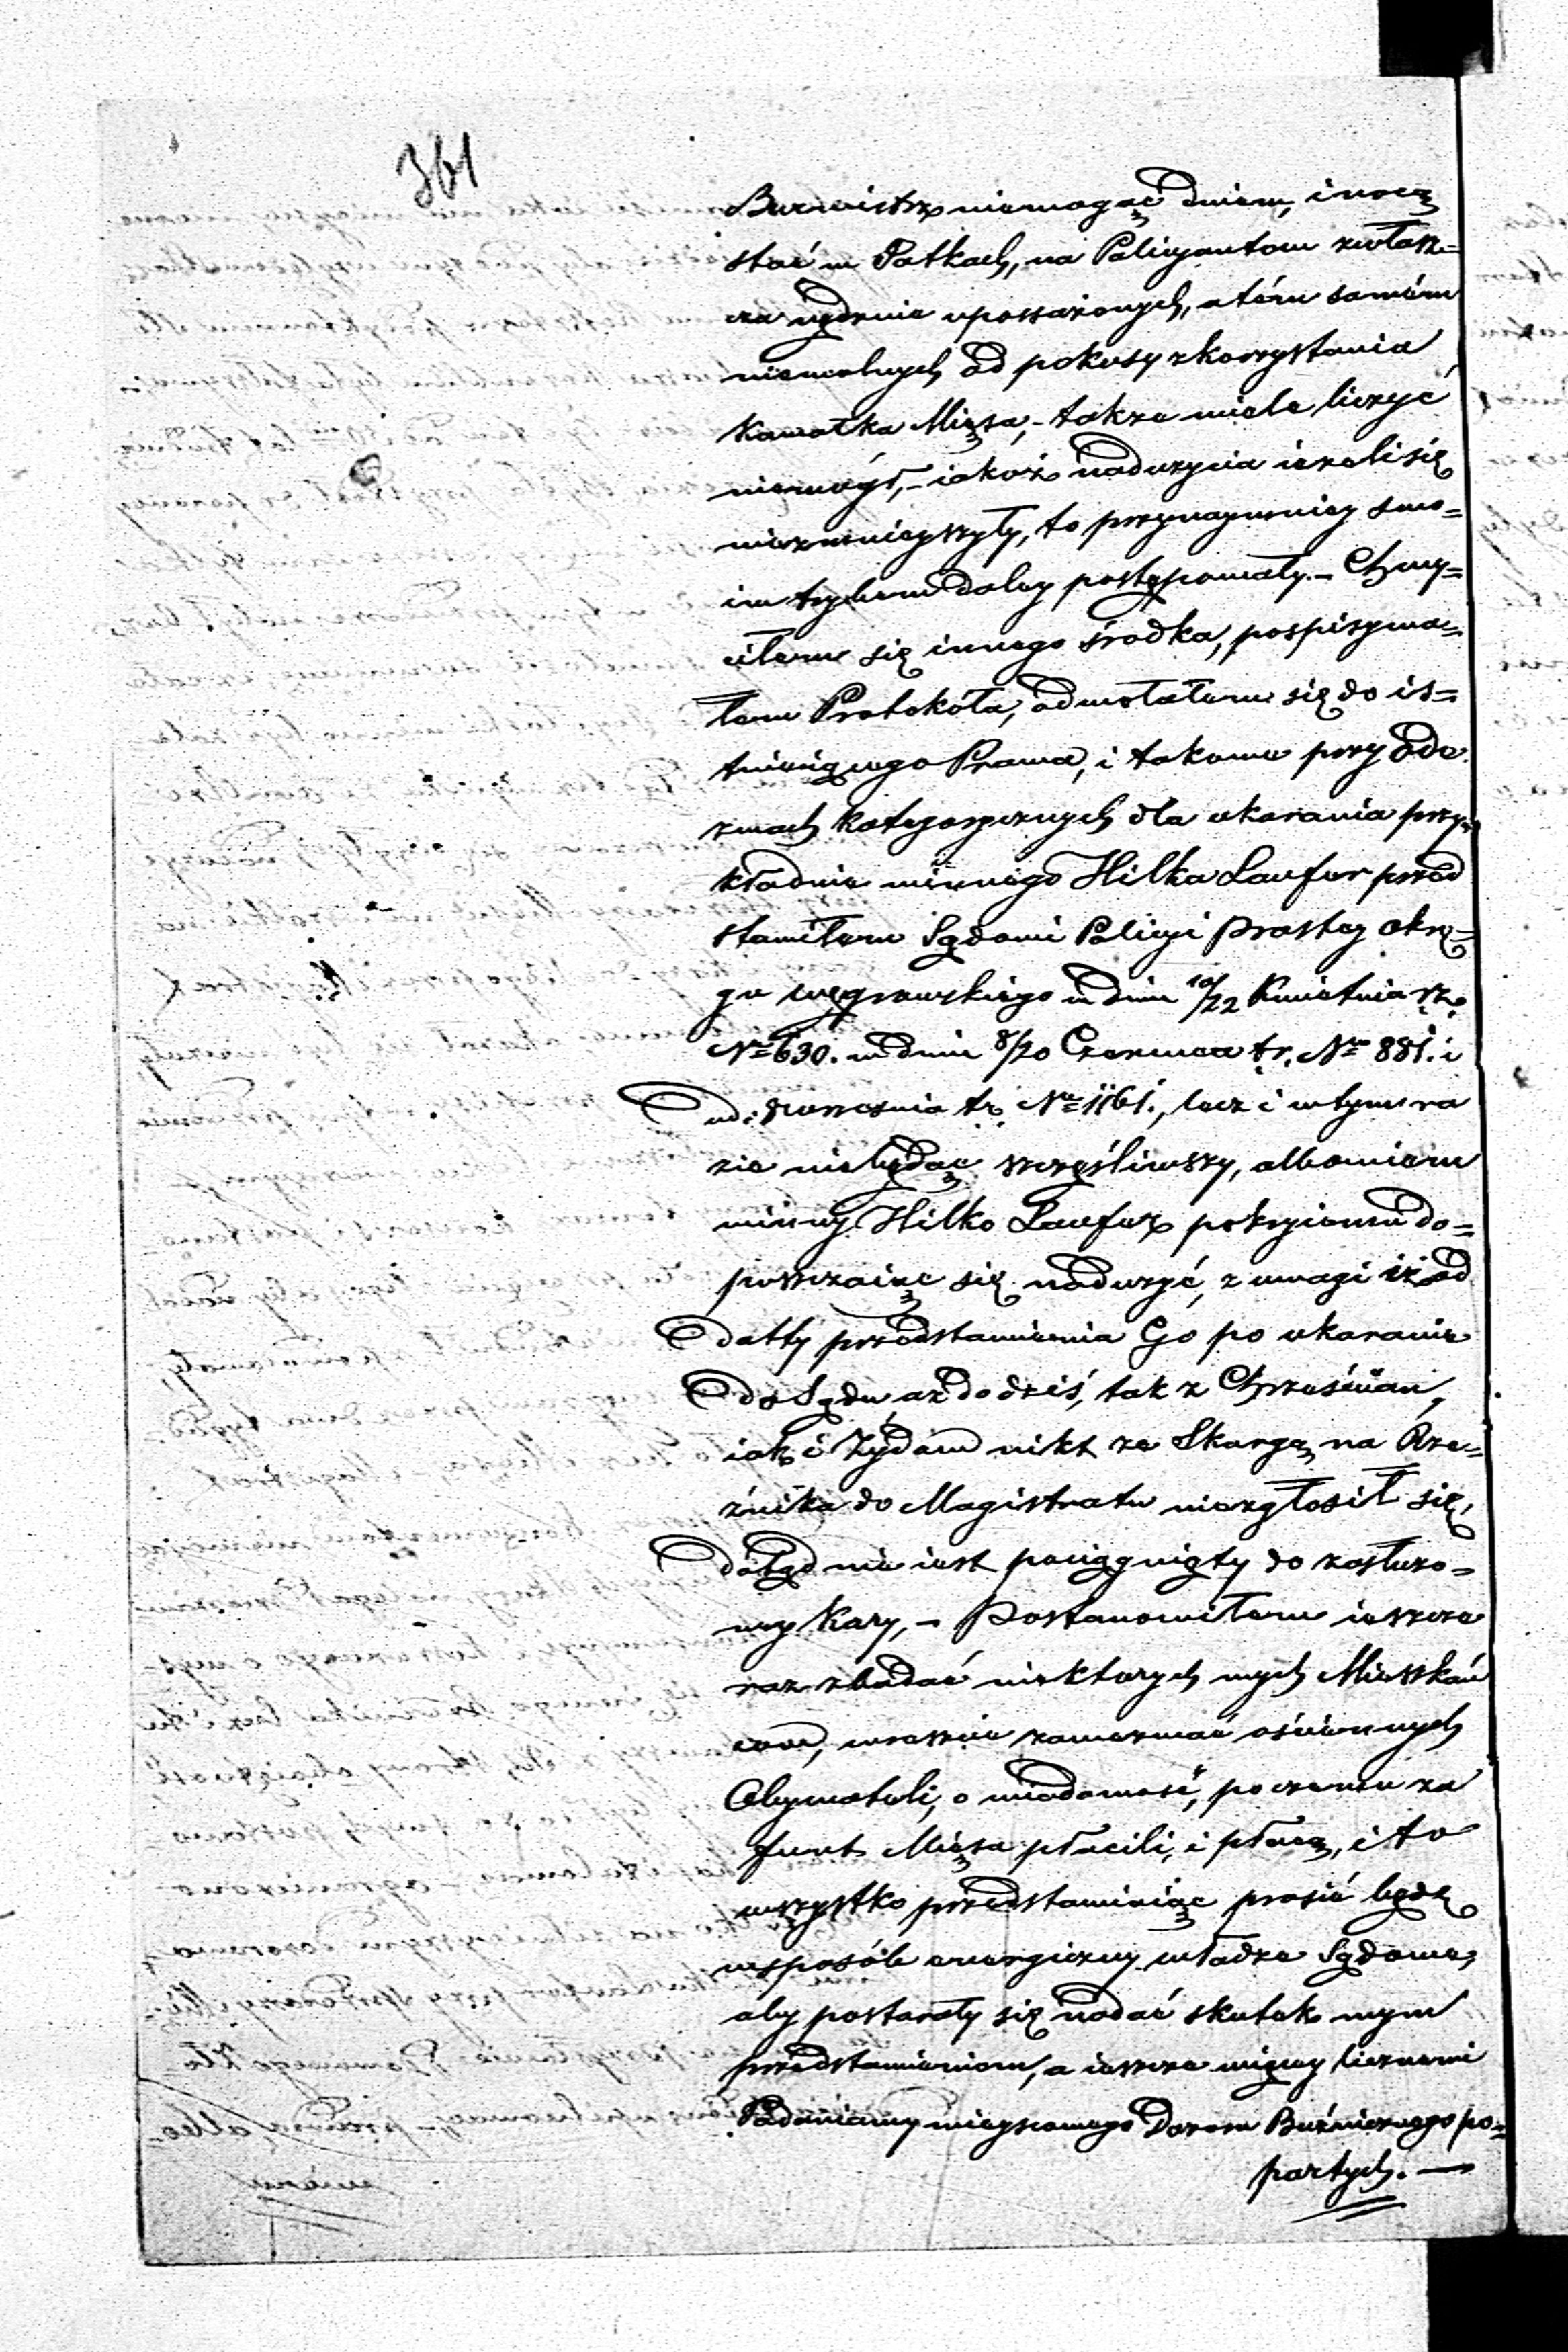 361
Burmistrz niemogąc dniem, i nocą
stać w Jatkach, na Policyantow zwłasz=
cza nędznie uposażonych, a tém samém
niewolnych od pokusy zkorzystania
Kawałka Mięsa, – takze wiele liczyć
niemógł, – iakoż nadużycia iezeli się
niezmnieyszyły, to przynaymniey swo=
im trybem daley postępowały. – Chwy=
ciłem się innego środka, pospisywa=
łem Protokóła, odwołałem się do is=
tnieiącego Prawa, i takowe przy Ode
zwach kategorycznych dla ukarania przy=
kładnie winnego Hilka Laufer przed
stawiłem Sądowi Policyi Prostey Okrę=
gu węgrowskiego w dniu 10/22 Kwietnia r.z.
Nro 630. w dniu 8/20 Czerwca t.r. Nro 881. i
wrzesnia t.r. Nro 1161., lecz i w tym ra
zie niebędąc szczęśliwszy, albowiem
winny Hilko Laufer pokryiomu do=
puszczaiąc się nadużyć, z uwagi iż od
datty przedstawienia Go po ukaranie
do Sądu, aż do dziś, tak z Chrześcian,
iak i Żydów nikt ze Skargą na Rze=
źnika do Magistratu niezgłosił się,
dotąd nie iest pociągnięty do zasłużo=
ney Kary, – Postanowiłem ieszcze
raz zbadać niektorych mych Mieszkań
cow, wreszcie zawezwać ościennych
Obywateli, o wiadomość, po czemu za
funt Mięsa płacili, i płacą, i to
wszystko przedstawiaiąc prosić będę
wsposób energiczny władze Sądowe,
aby postarały się nadać skutek mym
przedstawieniom, a ieszcze więcey licznemi
Podaniamy mieyscowego Dozoru Bużnicznego po=
partych. —